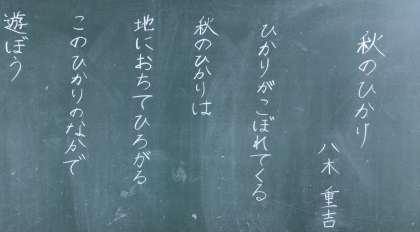 秋のひかり
八木 重吉
ひかりがこぼれてくる
秋のひかりは
地におちてひろがる
このひかりのなかで
遊ぼう